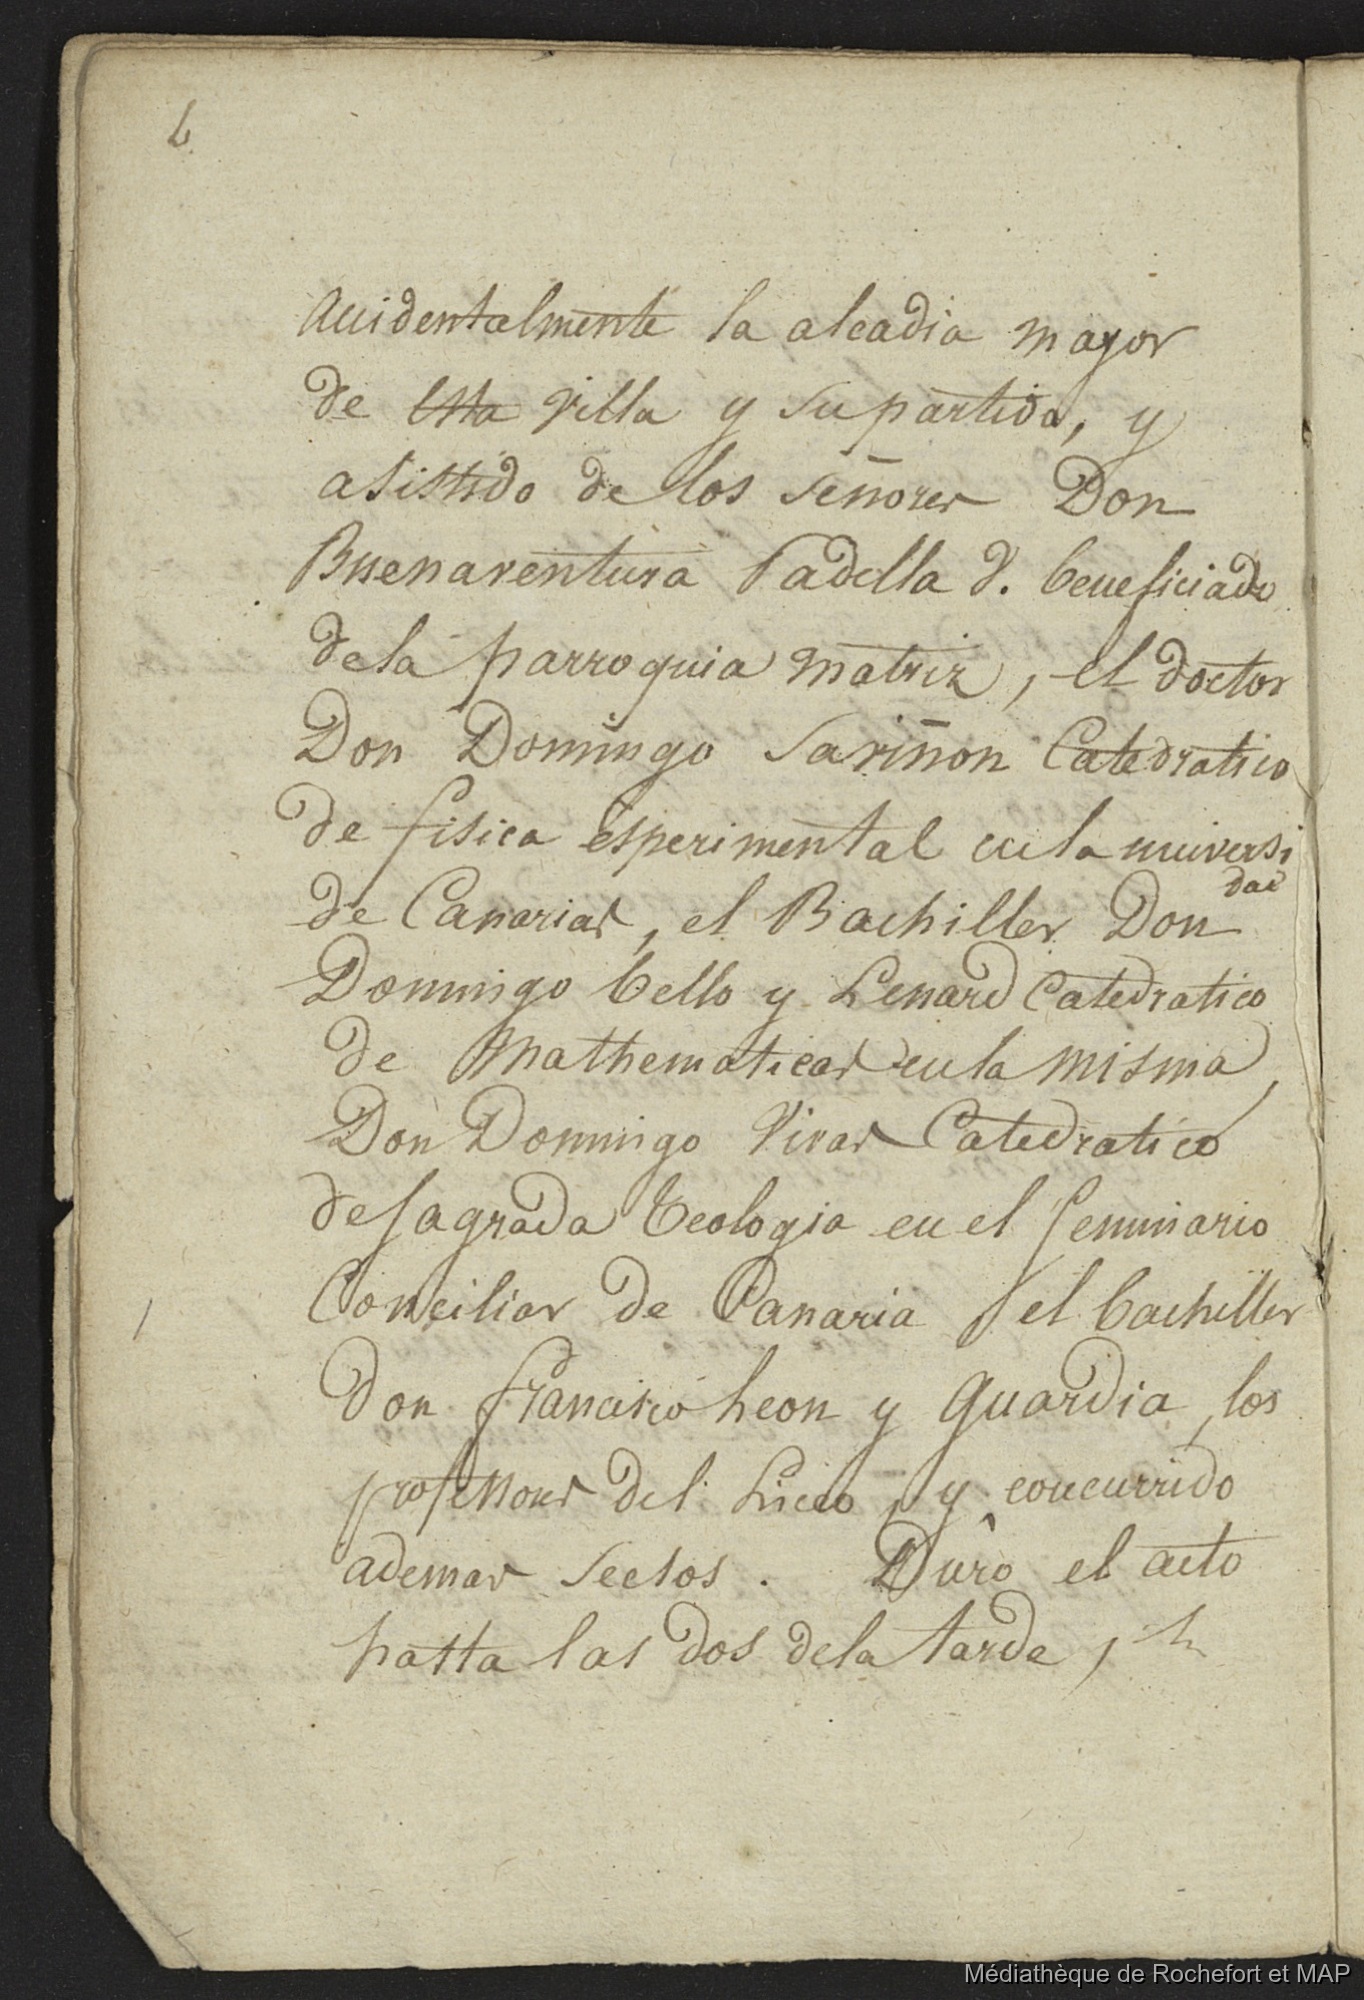 6
Accidentalmente la alcadia mayor
de esta villa y su partido, y
asistido de los señores Don
Buenaventura Padilla V. beneficiado
dela parroquia matriz, el doctor
Don Domingo Saviñon Catedratico
de fisica esperimental en la universi
dad
de Canarias, el Bachiller Don
Domingo bello y Lenard Catedratico
de Mathematicas en la misma,
Don Domingo Vivas Catedratico
de sagrada teologia en el seminario
Conciliar de Canaria, el bachiller
Don francisco Leon y Guardia, los
professores del Liceo, y concurrido
ademas sectos. Duró el acto
hasta las dos dela tarde,
Médiathèque de Rochefort et MAP